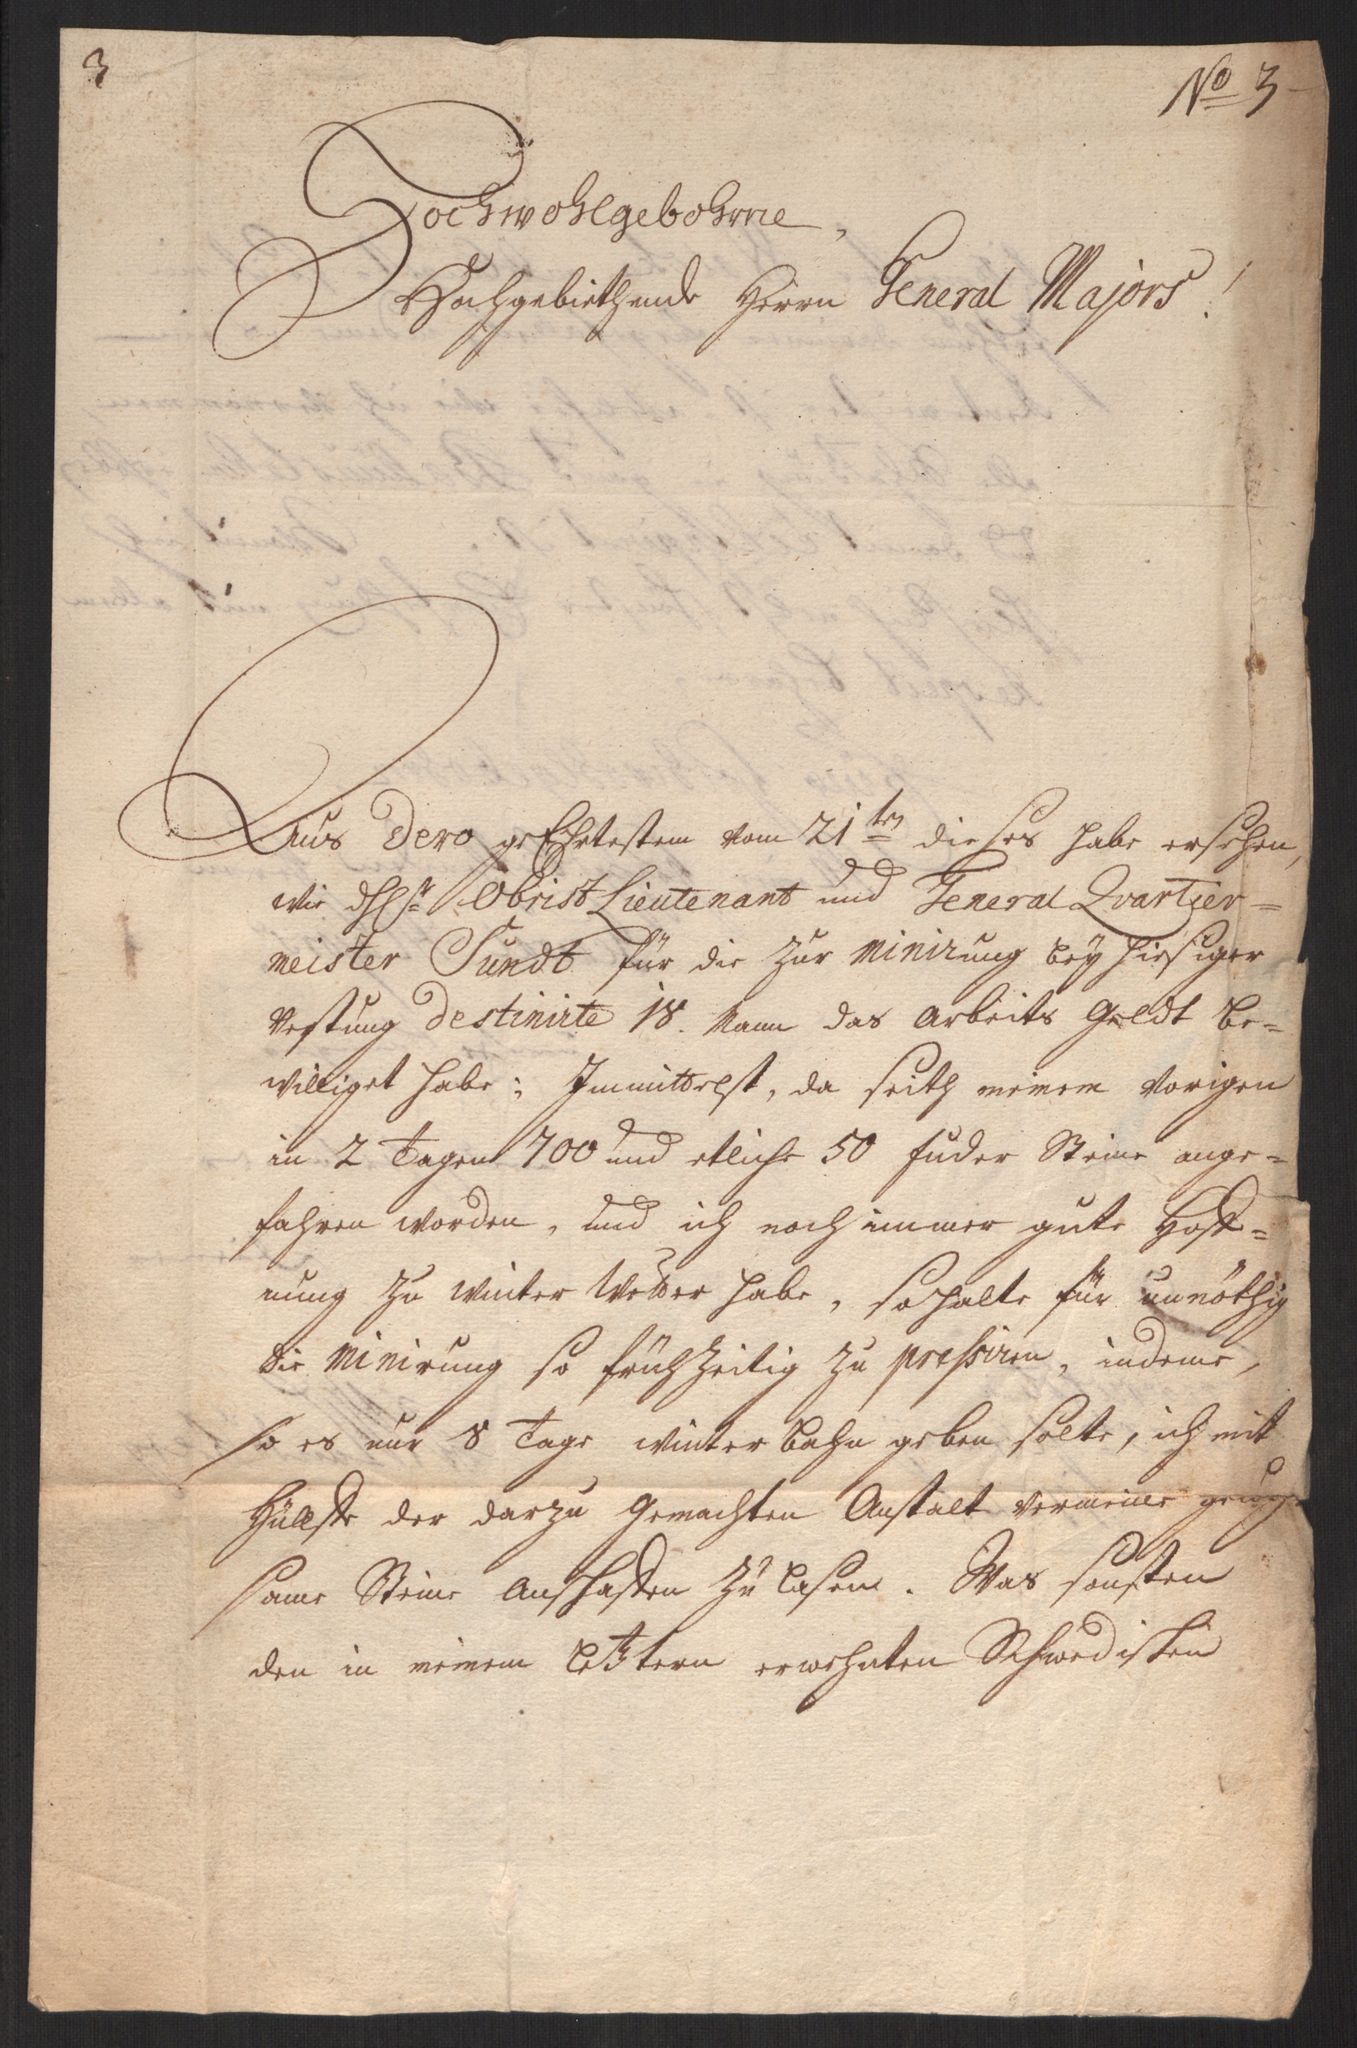 3
No 3
Hochwohlgebohrne,
Hochgebiethende Herrn General Majors!
Aus Dero geEhrtestem vom 21ten dieses habe ersehen,
wie Obrist Lieutenant und General Qvartier-
meister Sundt für die zur Minirung bey hiesiger
Vestung destinirte 18. Mann das Arbeits Geldt be-
williget habe; Immittelst, da seith meinem Vorigen
in 2 Tagen 700 und etliche 50 fuder Steine ange-
fahren worden, und ich noch immer gute Hoff-
nung zu winter Wetter habe, so halte für unnöthig
die Minirung so frühzeitig zu pressiren, indeme,
so es nur 8 Tage winter bahn geben solte, ich mit
Hülffe der darzu gemachten Anstalt vermeine genug-
same Steine Anschaffen zu lasen. Was sonsten
den in meinem letztern erwehnten Schwedischen